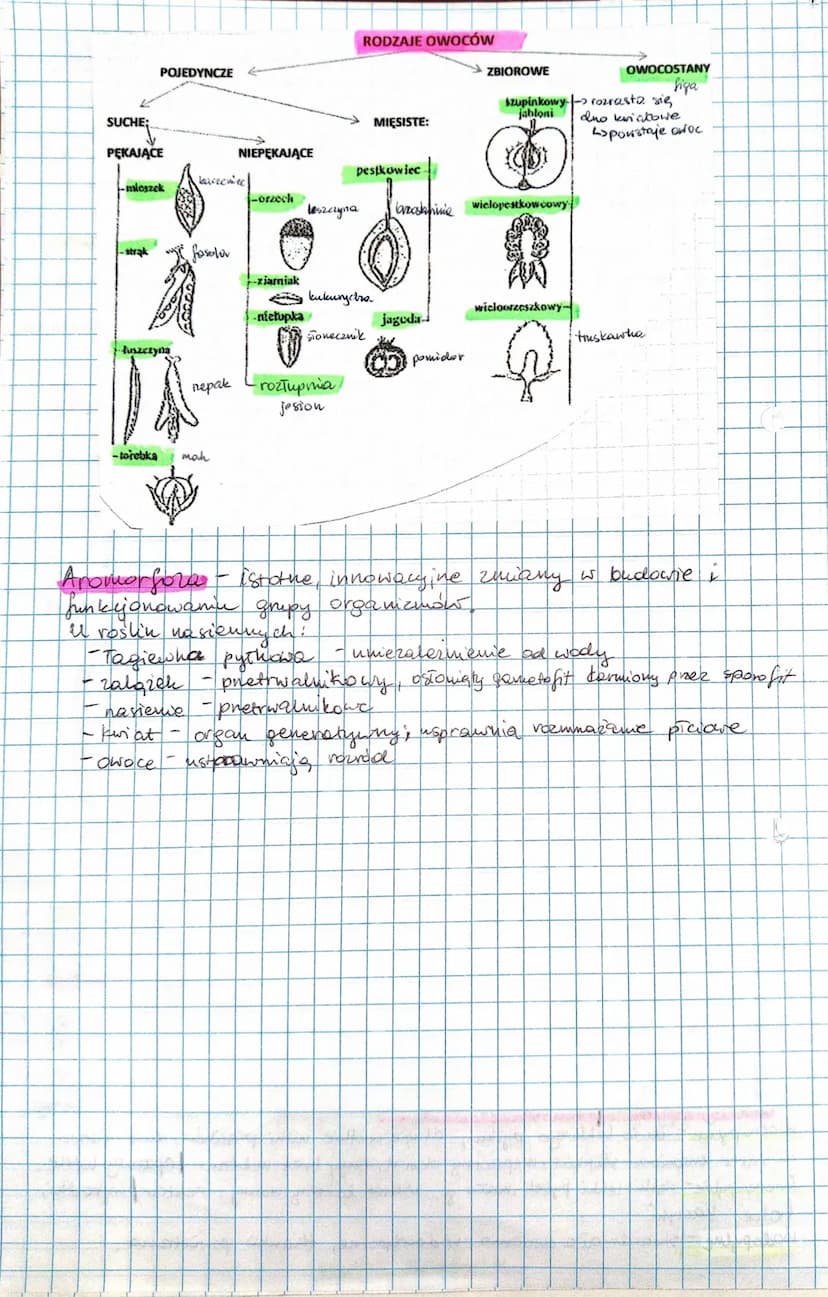 RODZAJE OWOCÓW
POJEDYNCZE
ZBIOROWE
OWOCOSTANY
figa
SUCHE:
MIĘSISTE:
PĘKAJĄCE
NIEPĘKAJĄCE
-mieszek
-strąk
fasola
łuszczyna
rzepak
-torebka
mak
-orzech
leszczyna
-ziarniak
kukurydza
-niełupka
słonecznik
rozłupnia
jesion
pestkowiec
brzoskwinia
jagoda
pomidor
szupinkowy
jabłoni
→ rozrasta się
dno kwiatowe
↳ powstaje owoc
wielopestkowcowy
wieloorzeszkowy
truskawka
Aromorfoza - istotne, innowacyjne zmiany w budowie i
funkcjonowaniu grupy organizmów.
U roślin nasiennych:
- łagiewka pyłkowa - uniezależnienie od wody
- zalążek - przetrwalnikowy, osłonięty gametofit karmiony przez sporofit
- nasienie - przetrwalnikowe
- kwiat - organ generatywny; usprawnia rozmnażanie płciowe
- owoce - usprawniają rozród